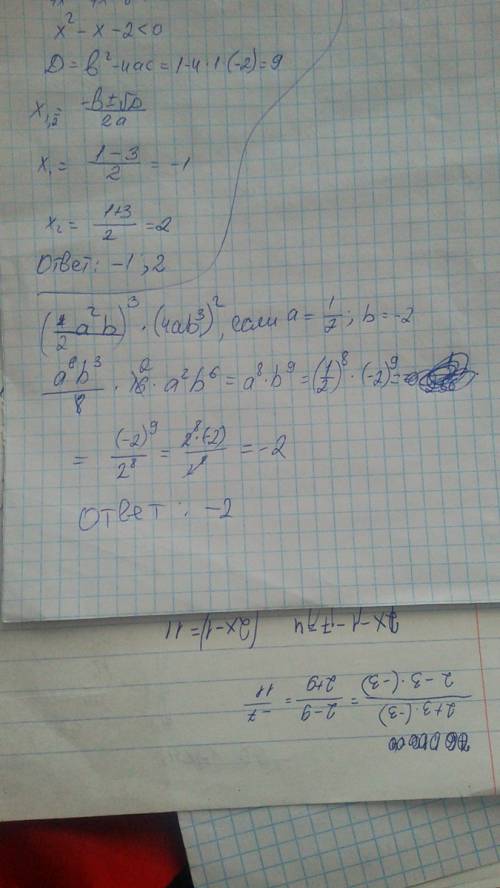 x² - x - 2 < 0
D = b² - 4ac = 1 - 4 · 1 · (-2) = 9
x₁,₂ = (-b ± √D)/(2a)
x₁ = (1 - 3)/2 = -1
x₂ = (1 + 3)/2 = 2
Ответ: -1 ; 2
(1/2 a²b)³ · (4ab³)², если a = 1/2 ; b = -2
a⁶b³/8 · 16 · a²b⁶ = a⁸ · b⁹ = (1/2)⁸ · (-2)⁹ =
= (-2)⁹/2⁸ = 2⁸·(-2)/2⁸ = -2
Ответ: -2
(2x-1)=11
(2+3·(-3))/(2-3·(-3)) = (2-9)/(2+9) = -7/11